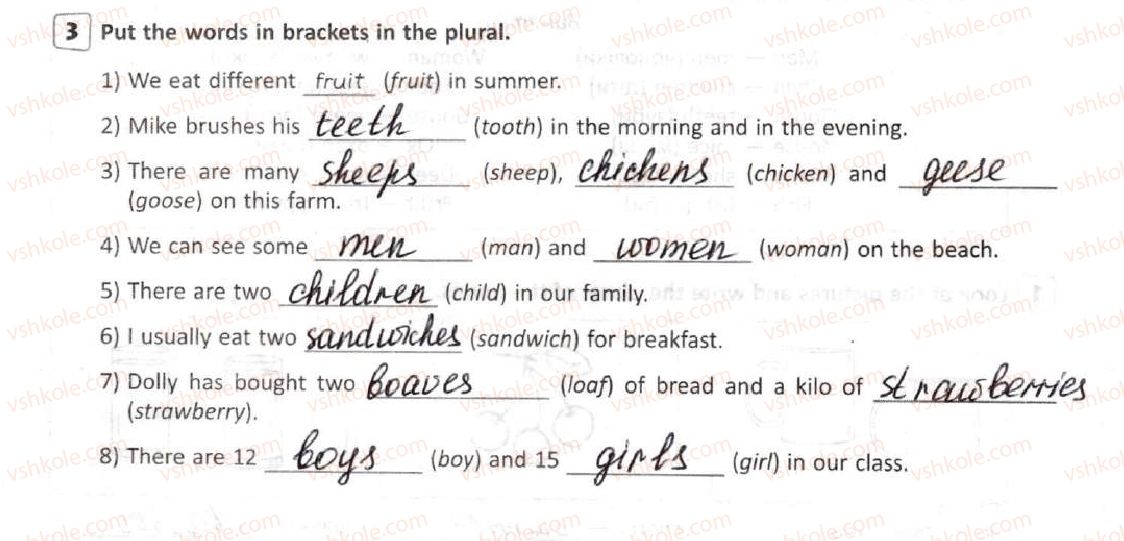 3 Put the words in brackets in the plural.
1) We eat different fruit (fruit) in summer.
2) Mike brushes his teeth (tooth) in the morning and in the evening.
3) There are many sheeps (sheep), chickens (chicken) and geese
(goose) on this farm.
4) We can see some men (man) and women (woman) on the beach.
5) There are two children (child) in our family.
6) I usually eat two sandwiches (sandwich) for breakfast.
7) Dolly has bought two boaves (loaf) of bread and a kilo of strawberries
(strawberry).
8) There are 12 boys (boy) and 15 girls (girl) in our class.